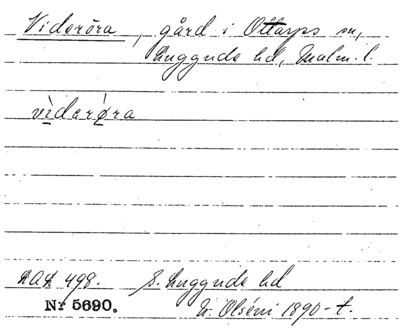 Videröra, gård i Ottarps sn,
Luggude hd, Malm. l.
vìderǿra
LAL 498. S. Luggude hd
Nr 5690. N. Olséni 1890-t.